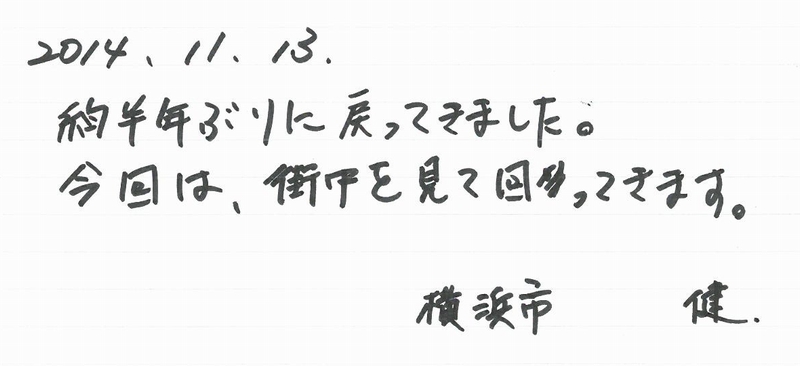 2014.11.13.
約半年ぶりに戻ってきました。
今回は、街中を見て回ってきます。
横浜市 健.